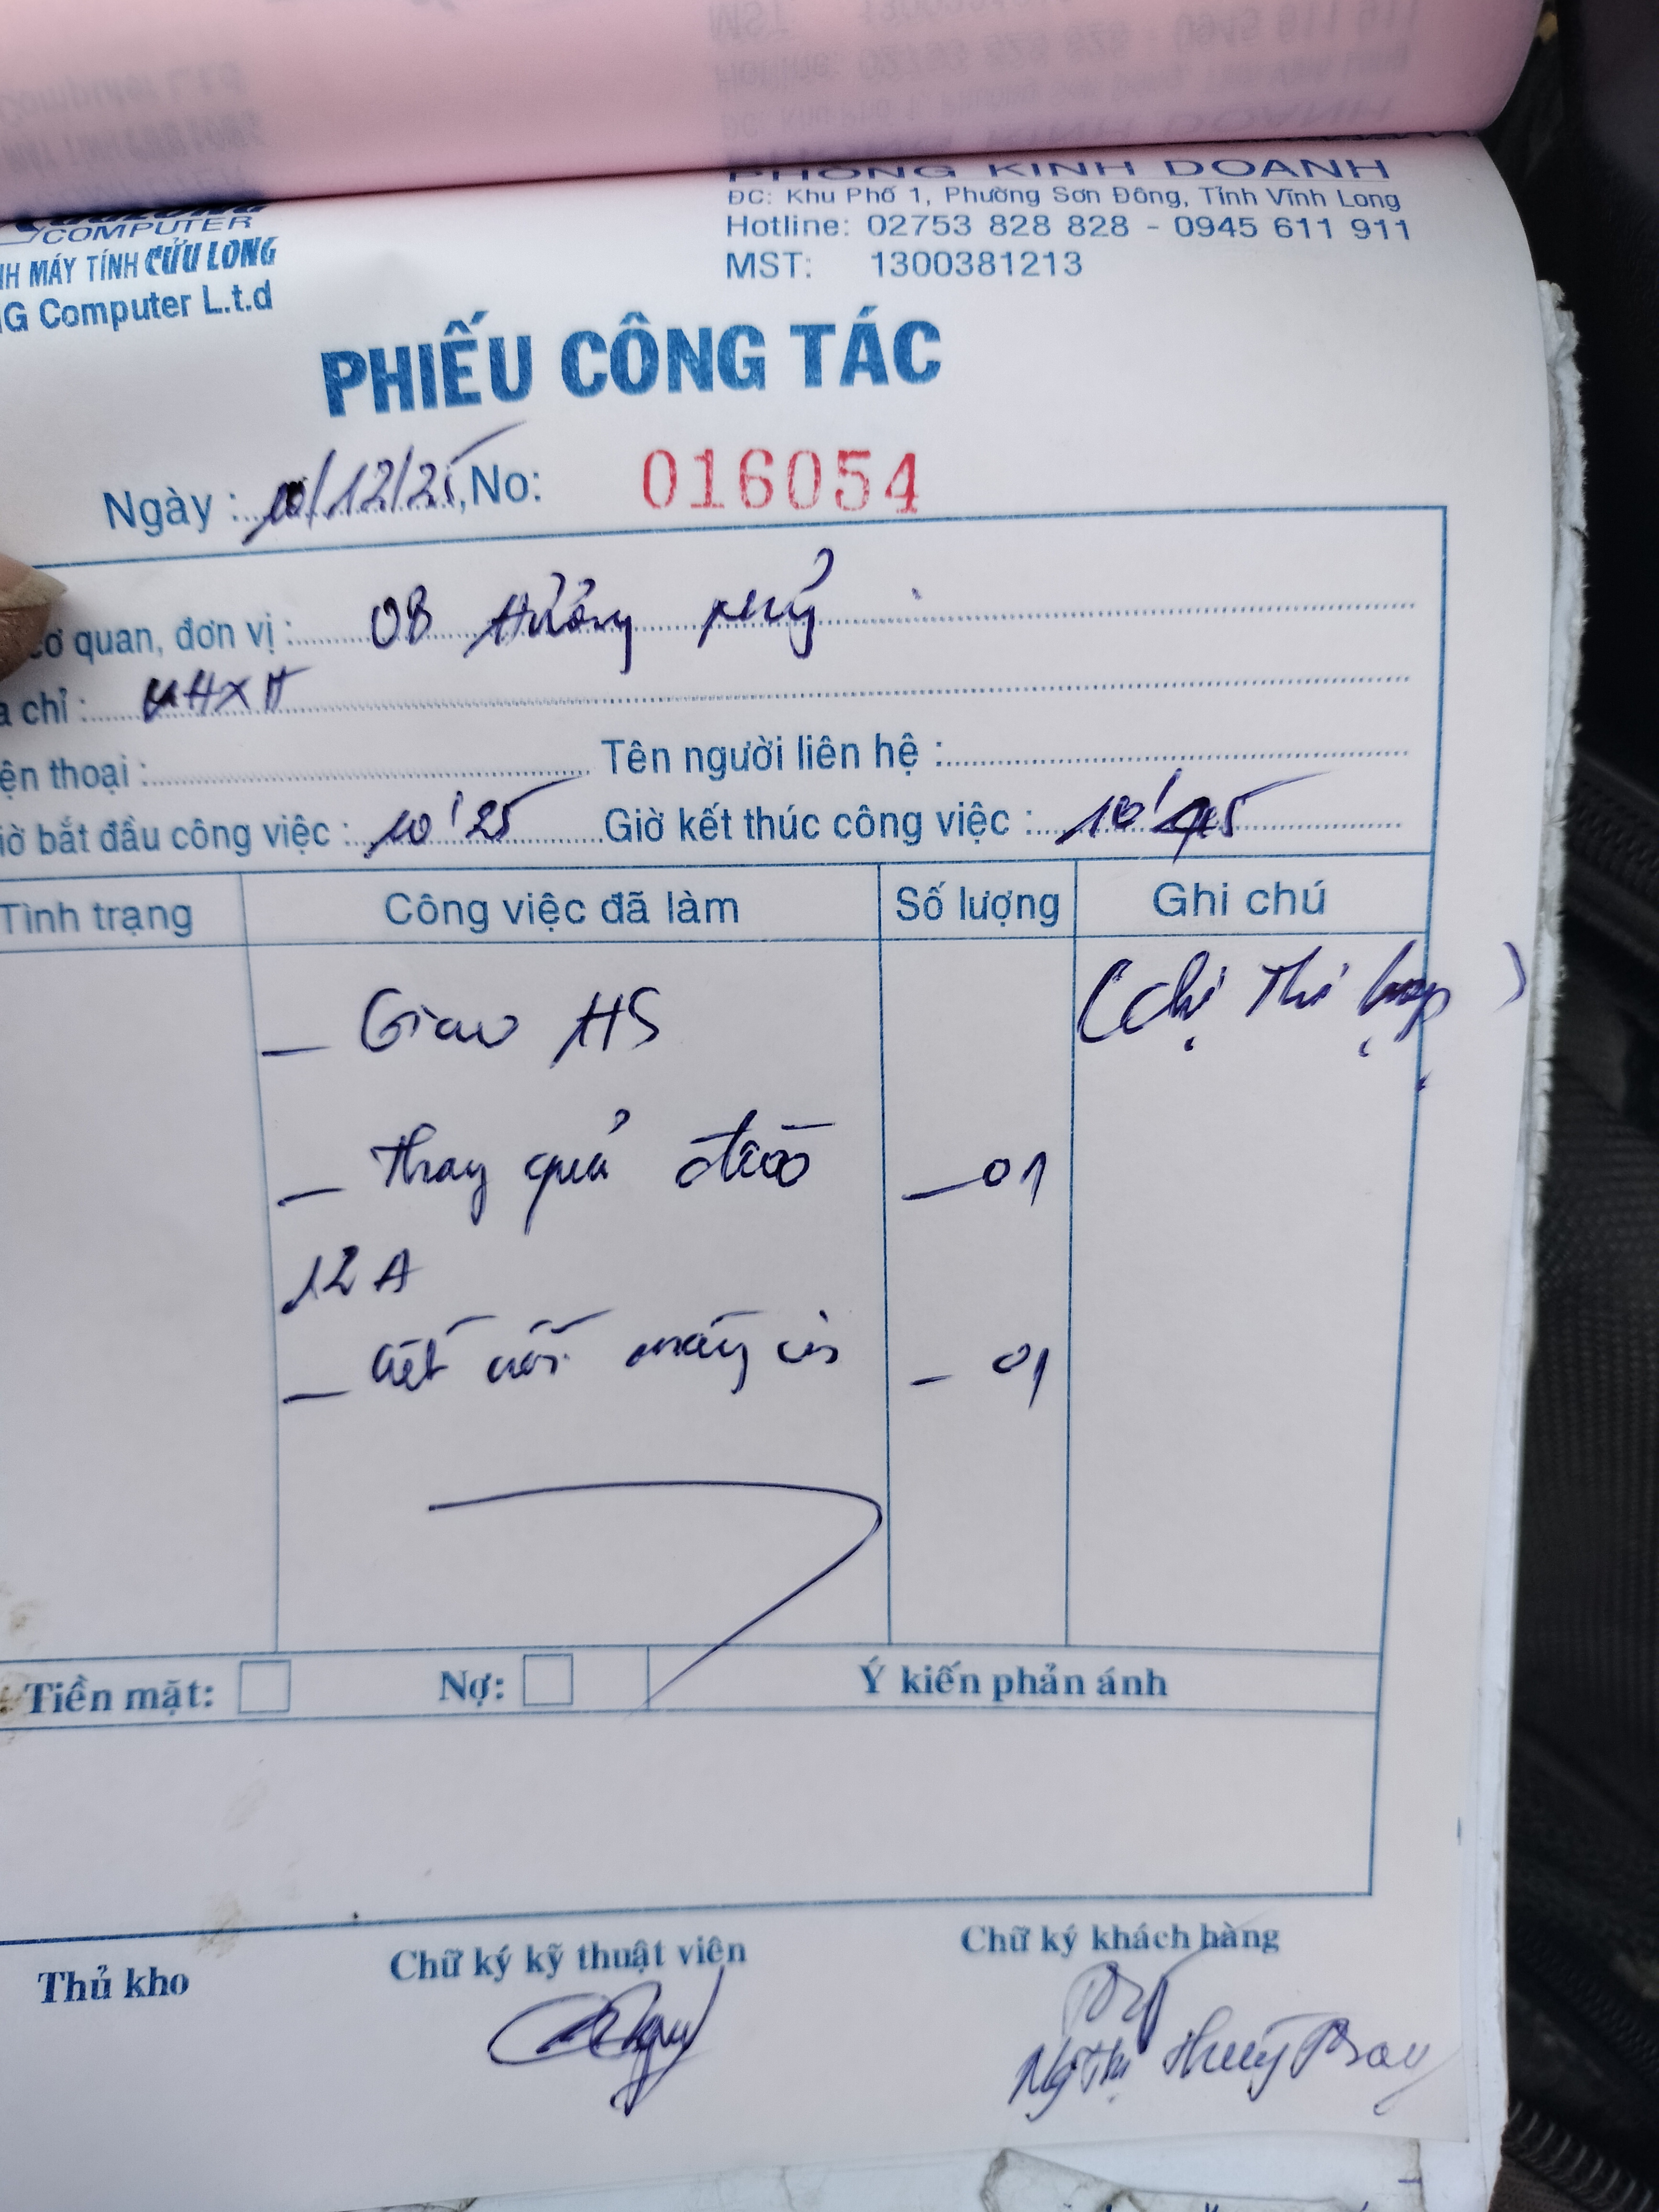 PHÒNG KINH DOANH
ĐC: Khu Phố 1, Phường Sơn Đông, Tỉnh Vĩnh Long
Hotline: 02753 828 828 - 0945 611 911
MST: 1300381213
COMPUTER
NH MÁY TÍNH CỬU LONG
NG Computer L.t.d
PHIẾU CÔNG TÁC
Ngày : 10/12/25, No: 016054
cơ quan, đơn vị :
a chỉ :
ện thoại : Tên người liên hệ :
iờ bắt đầu công việc : 10'25 Giờ kết thúc công việc : 10'45
Tình trạng Công việc đã làm Số lượng Ghi chú
_ Giao HS (chị Thi )
_ Thay quả đào _ 01
12A
_ kết nối máy in _ 01
Tiền mặt: Nợ: Ý kiến phản ánh
Thủ kho Chữ ký kỹ thuật viên Chữ ký khách hàng